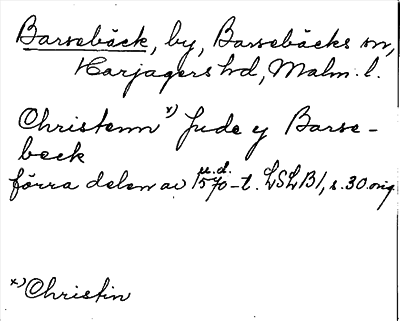 Barsebäck, by, Barsebäcks sn,
Harjagers hd, Malm. l.
Christenn x) Jude y Barse-
beck
förra delen av 1570-t. LSLB1, s. 30. orig.
u.d.
x) Christin